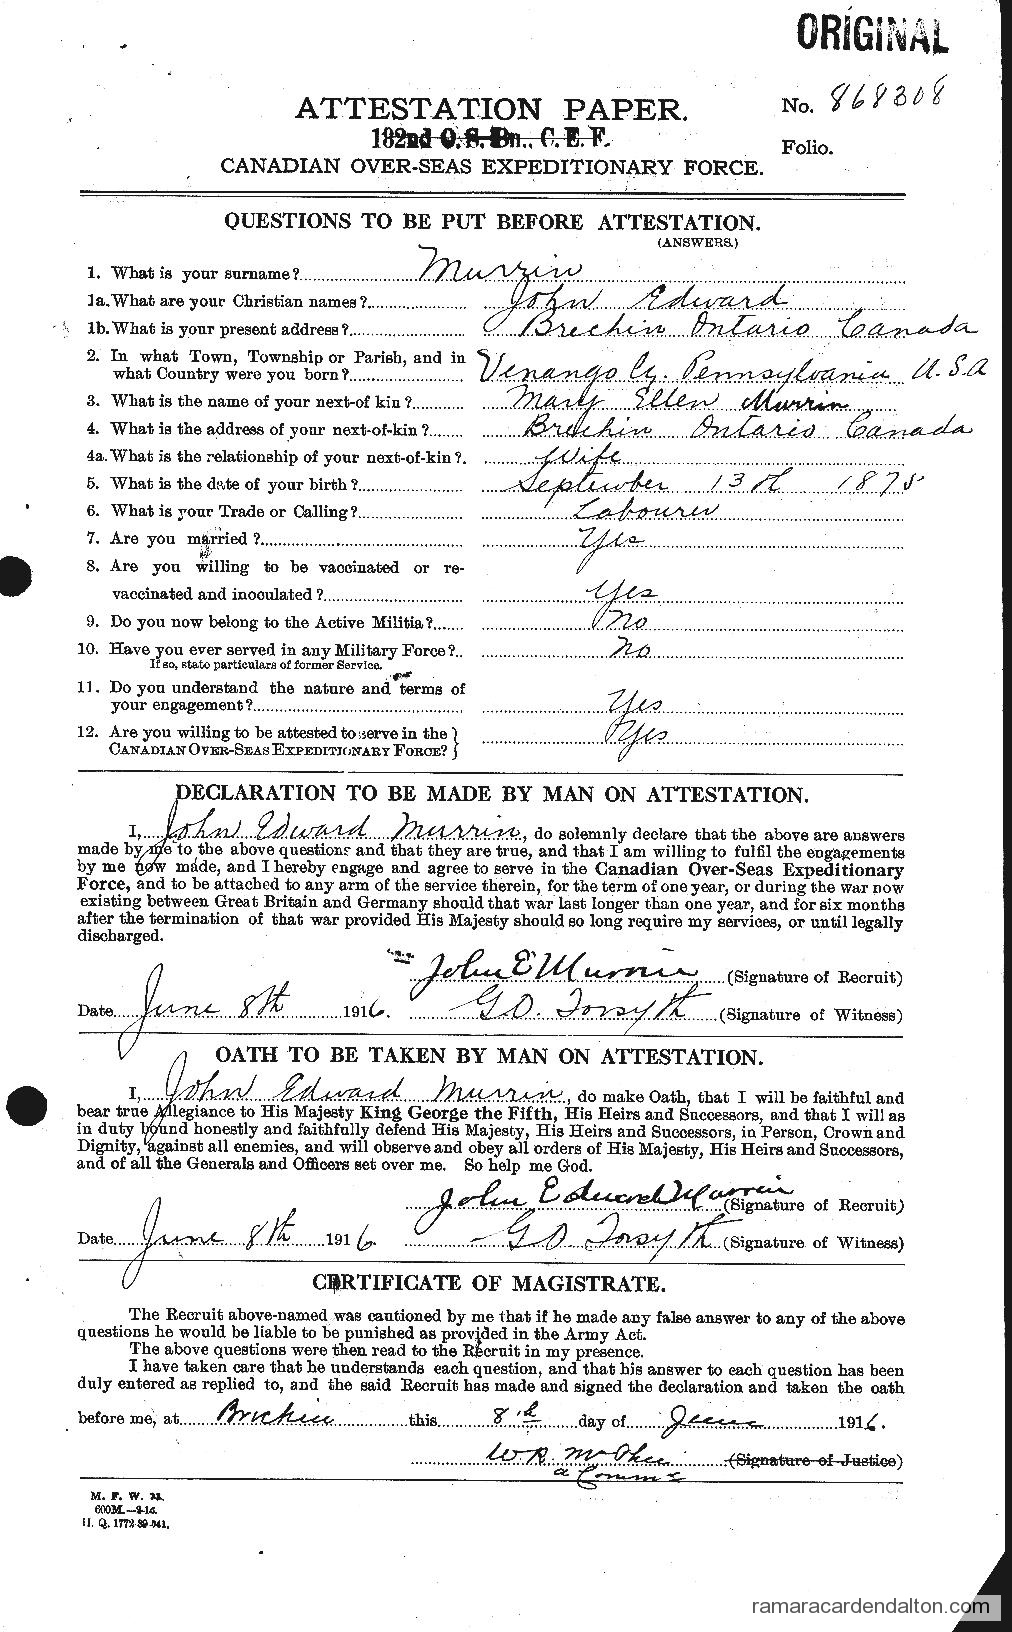 ORIGINAL
No. 868308
ATTESTATION PAPER.
182nd O. S. Bn., C. E. F.
Folio.
CANADIAN OVER-SEAS EXPEDITIONARY FORCE.
QUESTIONS TO BE PUT BEFORE ATTESTATION.
(ANSWERS.)
1. What is your surname? Murrin
1a. What are your Christian names? John Edward
1b. What is your present address? Brechin Ontario Canada
2. In what Town, Township or Parish, and in
what Country were you born? Venango Cy. Pennsylvania U.S.A
3. What is the name of your next-of kin? Mary Ellen Murrin
4. What is the address of your next-of-kin? Brechin Ontario Canada
4a. What is the relationship of your next-of-kin? Wife
5. What is the date of your birth? September 13th 1875
6. What is your Trade or Calling? Labourer
7. Are you married? Yes
8. Are you willing to be vaccinated or re-
vaccinated and inoculated? Yes
9. Do you now belong to the Active Militia? No
10. Have you ever served in any Military Force?.. No
If so, state particulars of former Service.
11. Do you understand the nature and terms of
your engagement? Yes
12. Are you willing to be attested to serve in the
CANADIAN OVER-SEAS EXPEDITIONARY FORCE? Yes
DECLARATION TO BE MADE BY MAN ON ATTESTATION.
I, John Edward Murrin, do solemnly declare that the above are answers
made by me to the above questions and that they are true, and that I am willing to fulfil the engagements
by me now made, and I hereby engage and agree to serve in the Canadian Over-Seas Expeditionary
Force, and to be attached to any arm of the service therein, for the term of one year, or during the war now
existing between Great Britain and Germany should that war last longer than one year, and for six months
after the termination of that war provided His Majesty should so long require my services, or until legally
discharged.
John E Murrin (Signature of Recruit)
Date June 8th 1916. G D. Forsyth (Signature of Witness)
OATH TO BE TAKEN BY MAN ON ATTESTATION.
I, John Edward Murrin, do make Oath, that I will be faithful and
bear true Allegiance to His Majesty King George the Fifth, His Heirs and Successors, and that I will as
in duty bound honestly and faithfully defend His Majesty, His Heirs and Successors, in Person, Crown and
Dignity, against all enemies, and will observe and obey all orders of His Majesty, His Heirs and Successors,
and of all the Generals and Officers set over me. So help me God.
John Edward Murrin (Signature of Recruit)
Date June 8th 1916 G D Forsyth (Signature of Witness)
CERTIFICATE OF MAGISTRATE.
The Recruit above-named was cautioned by me that if he made any false answer to any of the above
questions he would be liable to be punished as provided in the Army Act.
The above questions were then read to the Recruit in my presence.
I have taken care that he understands each question, and that his answer to each question has been
duly entered as replied to, and the said Recruit has made and signed the declaration and taken the oath
before me, at Brechin this 8th day of June 1916.
W R. McPhee (Signature of Justice)
a Commr
M. F. W. 23.
600M.—2-16.
H. Q. 1772-39-841.
ramaracardendalton.com